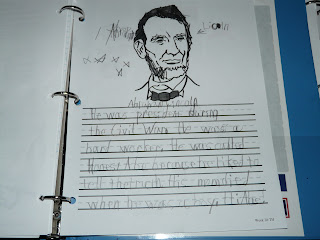 Lincoln
Abraham Lincoln
He was president during
the Civil War. He was a
hard worker. He was called
Honest Abe because he liked to
tell the truth. He
when he was a